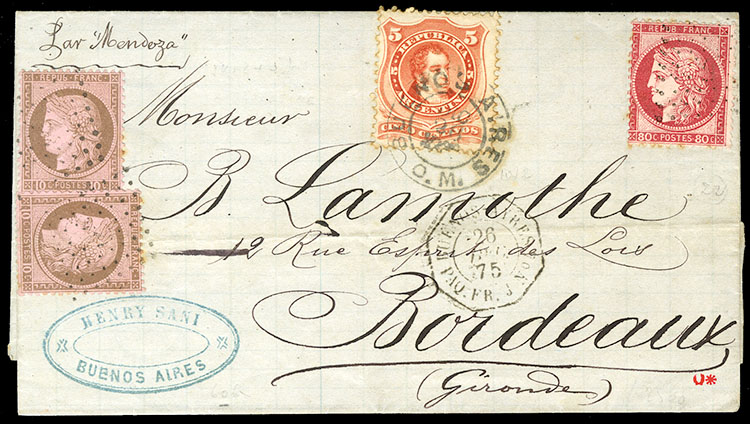 Par "Mendoza"
REPUB. FRANC.
10 C. POSTES 10 C.
REPUB. FRANC.
10 C. POSTES 10 C.
5 5
REPUBLICA
ARGENTINA
CINCO CENTAVOS
REPUB. FRANC.
80 C. POSTES 80 C.
AYRES
O. M.
Monsieur
B Lamothe
12 Rue Esprit des Lois
Bordeaux
(Gironde)
BUENOS-AYRES
26
75
PAQ. FR. J No
HENRY SANI
BUENOS AIRES